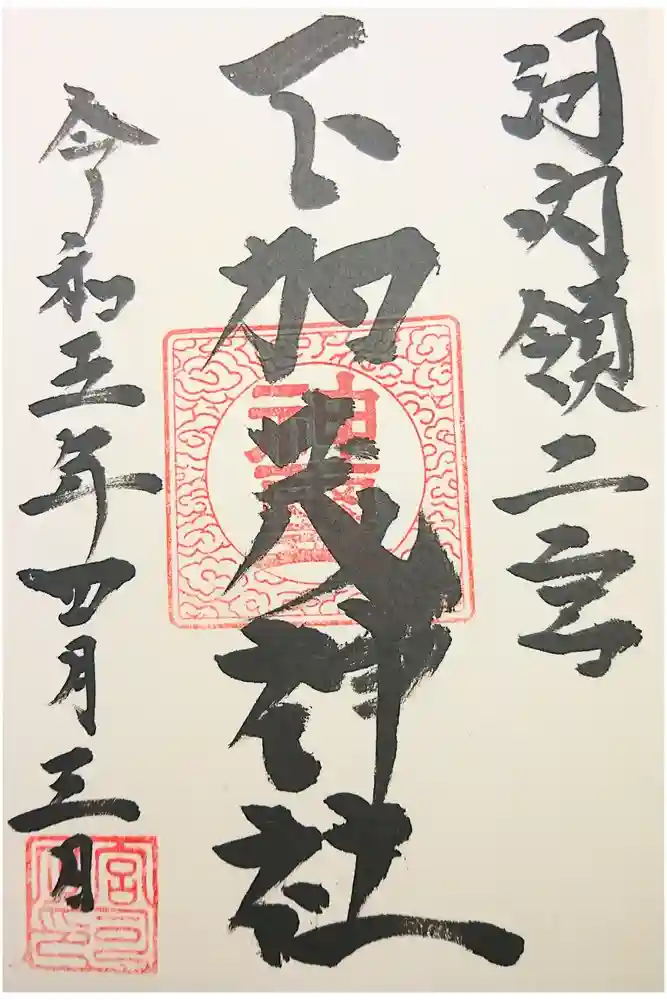 河内領二宮
下加茂神社
令和五年四月三日